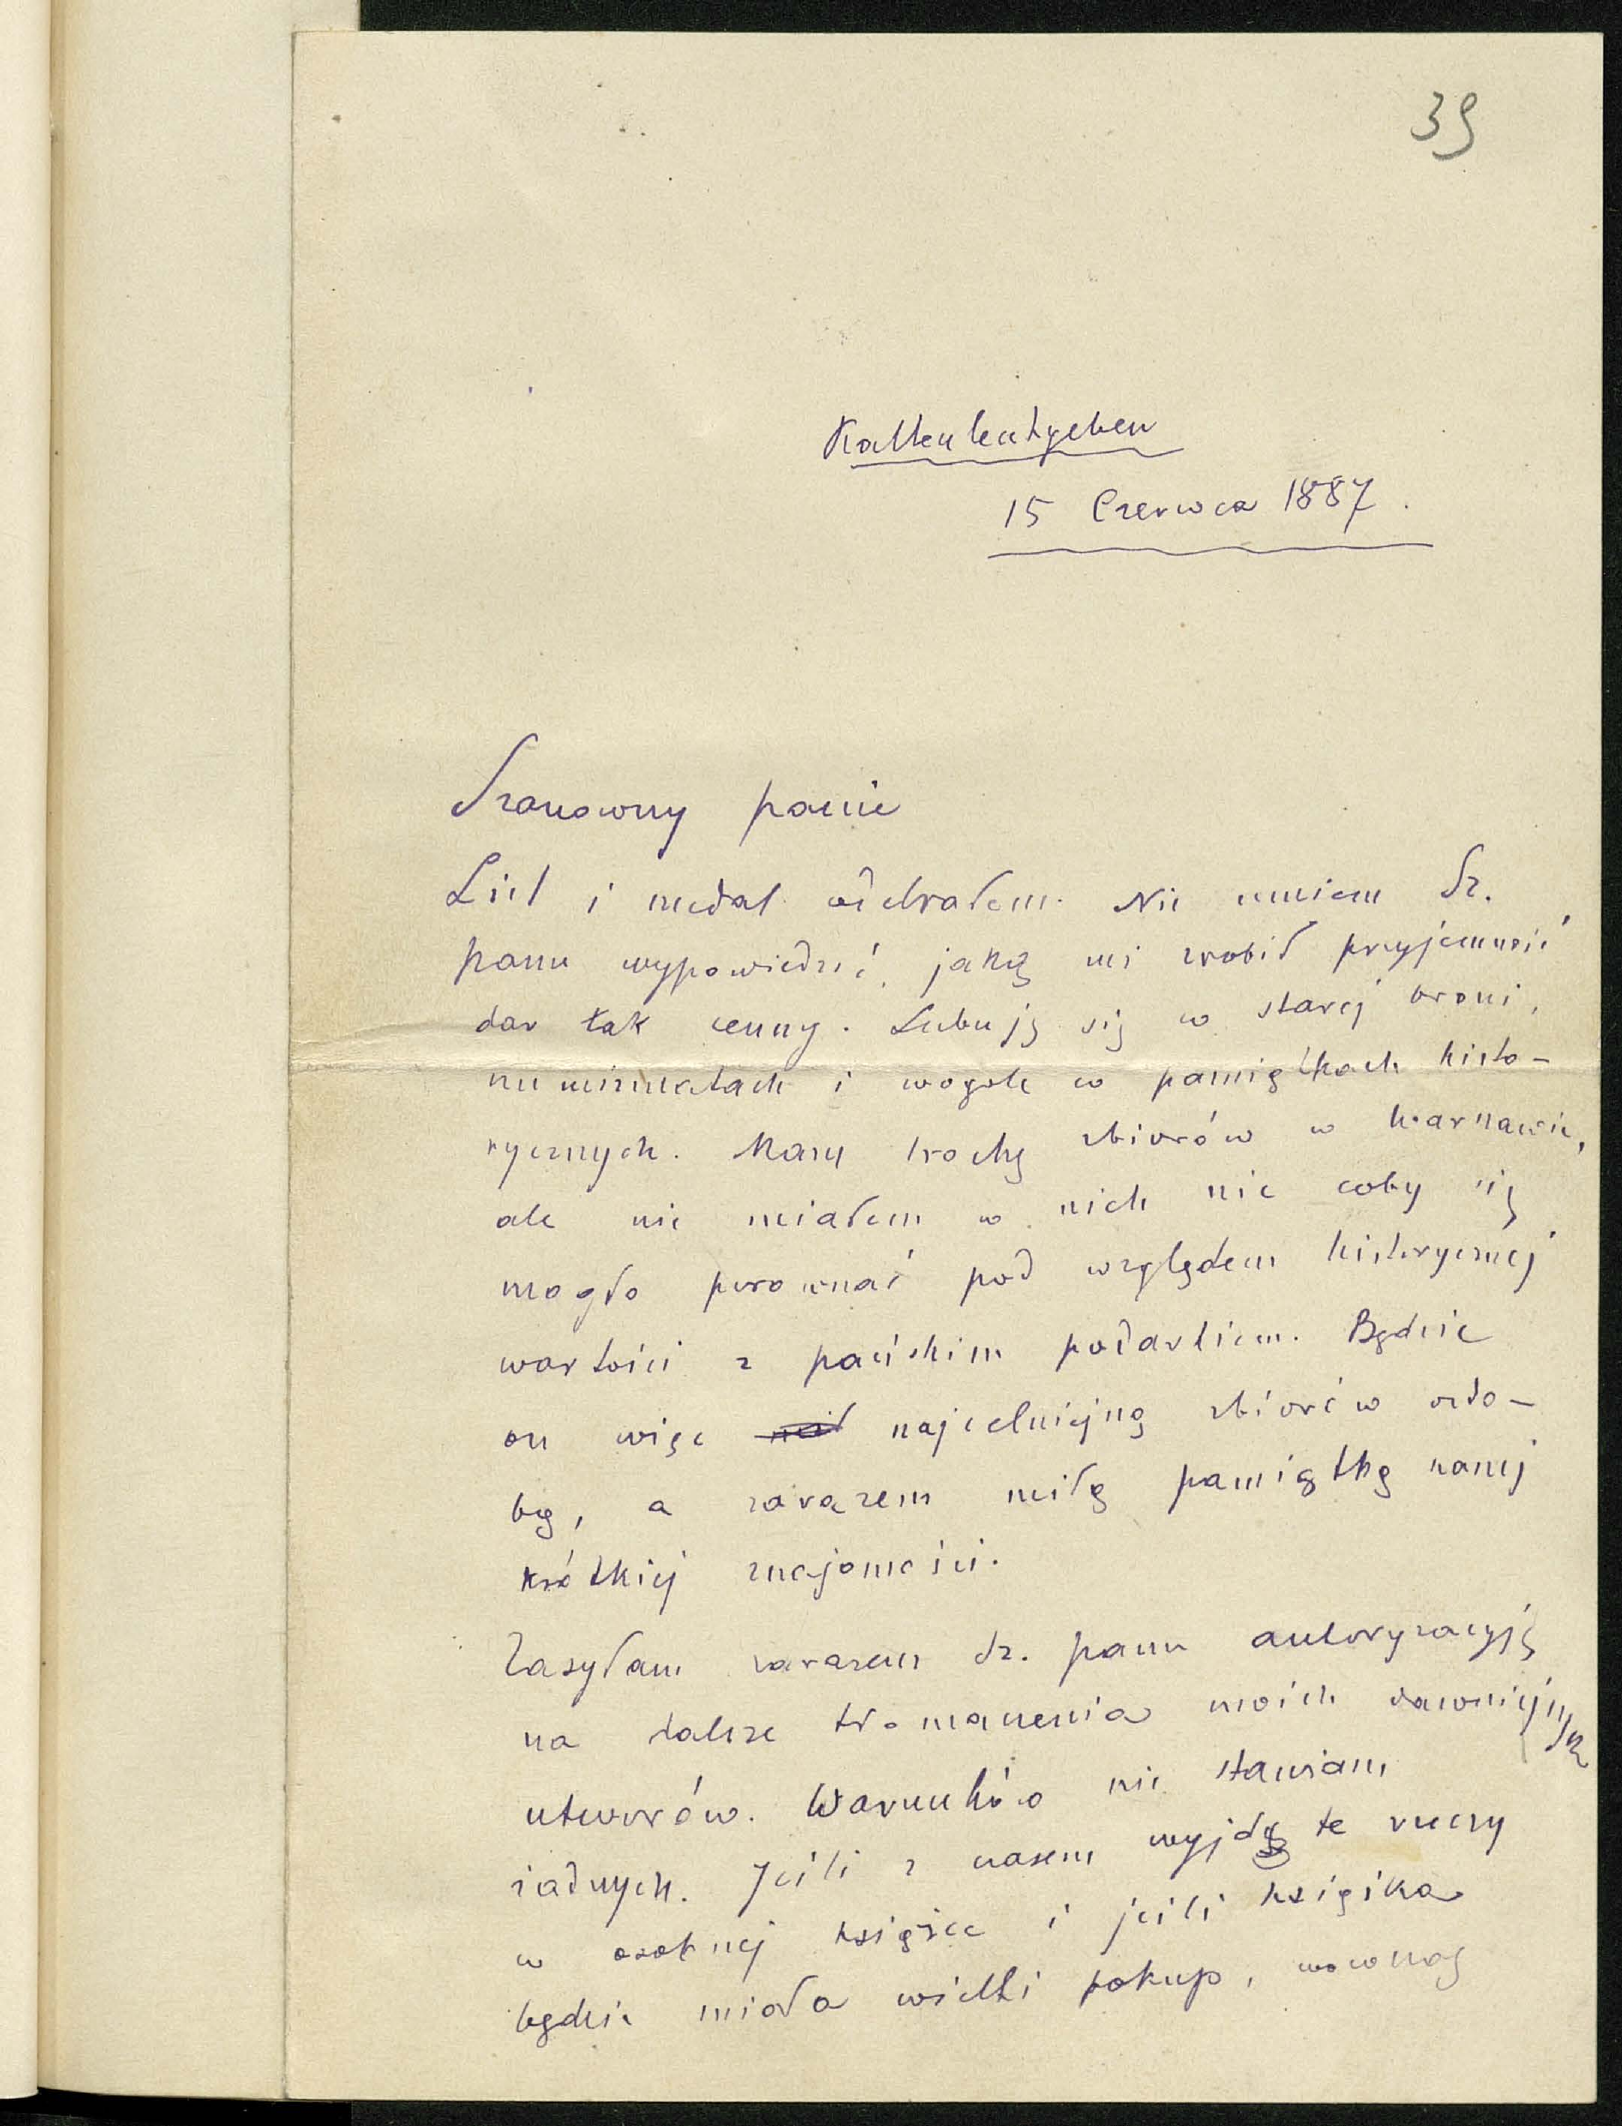 39
Kaltenleutgeben
15 Czerwca 1887.
Szanowny panie
List i medal odebrałem. Nie umiem Sz.
panu wypowiedzić, jaką mi zrobił przyjemność
dar tak cenny. Lubuję się w starej broni,
numizmatach i wogole w pamiątkach histo-
rycznych. Mam trochę zbiorów w Warszawie,
ale nie miałem w nich nic coby się
mogło porownać pod względem historycznej
wartości z pańskim podarkiem. Będzie
on więc najcelniejszą zbiorów ozdo-
bą, a zarazem miłą pamiątką naszej
krótkiej znajomości.
Zasyłam zarazem Sz. panu autoryzacyję
na dalsze tłomaczenia moich dawniejszych
utworów. Warunków nie stawiam
żadnych. Jeśli z czasem wyjdą te rzeczy
w osobnej książce i jeśli książka
będzie miała wielki pokup, wówczas